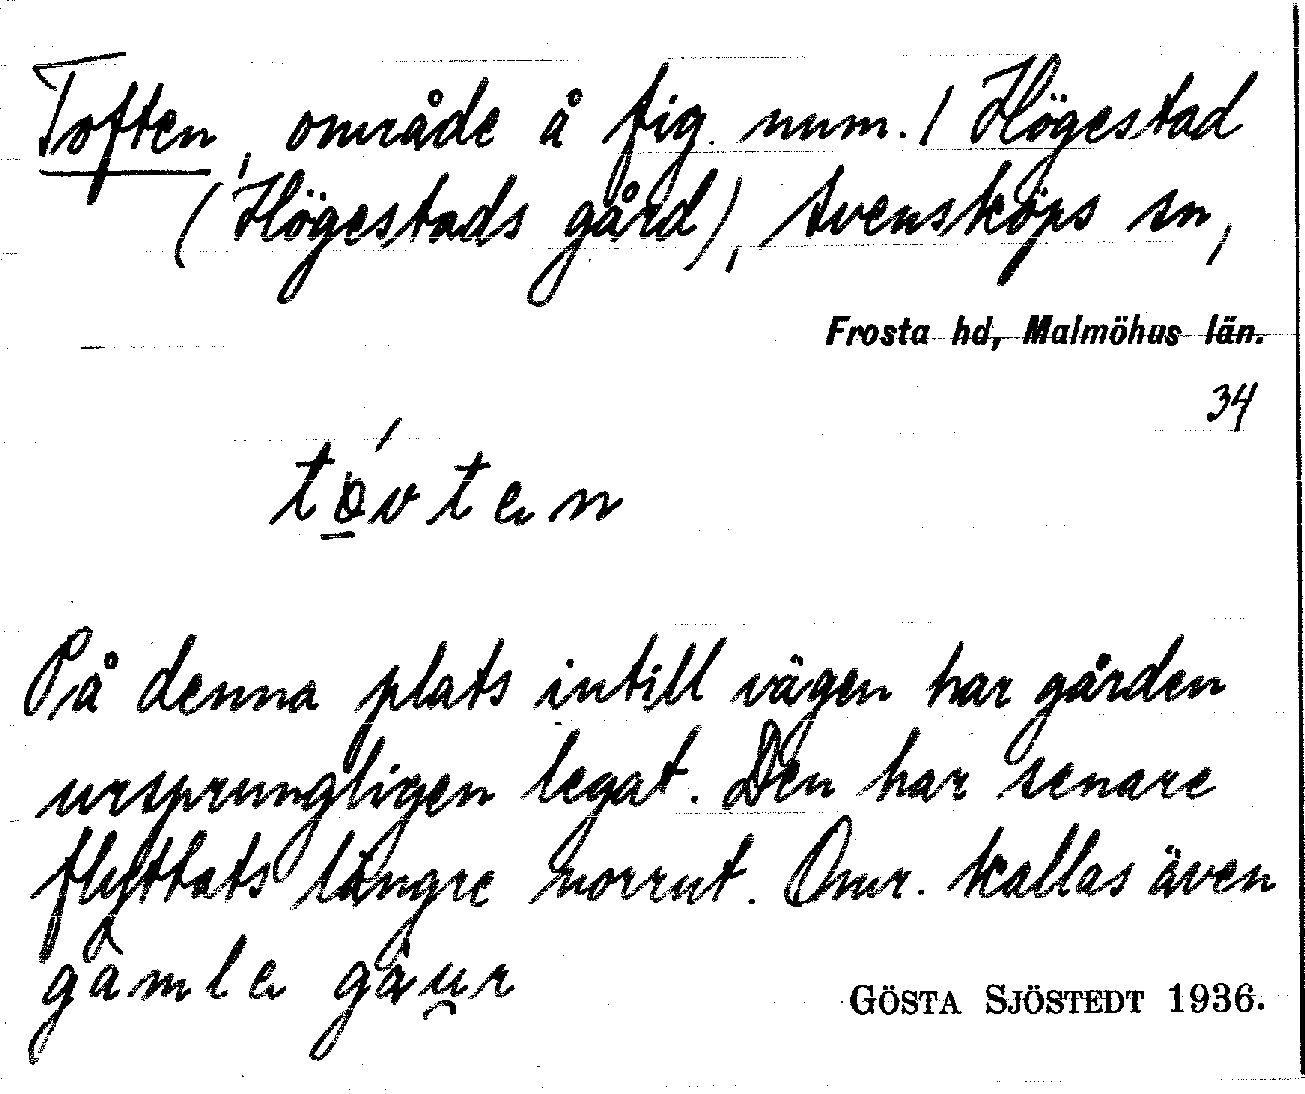 Toften, område å fig. num. 1 Högestad
(Högestads gård), Svensköps sn,
Frosta hd, Malmöhus län.
34
tǫ́vten
På denna plats intill vägen har gården
ursprungligen legat. Den har senare
flyttats längre norrut. Omr. kallas även
gàmle gau̯r
GÖSTA SJÖSTEDT 1936.